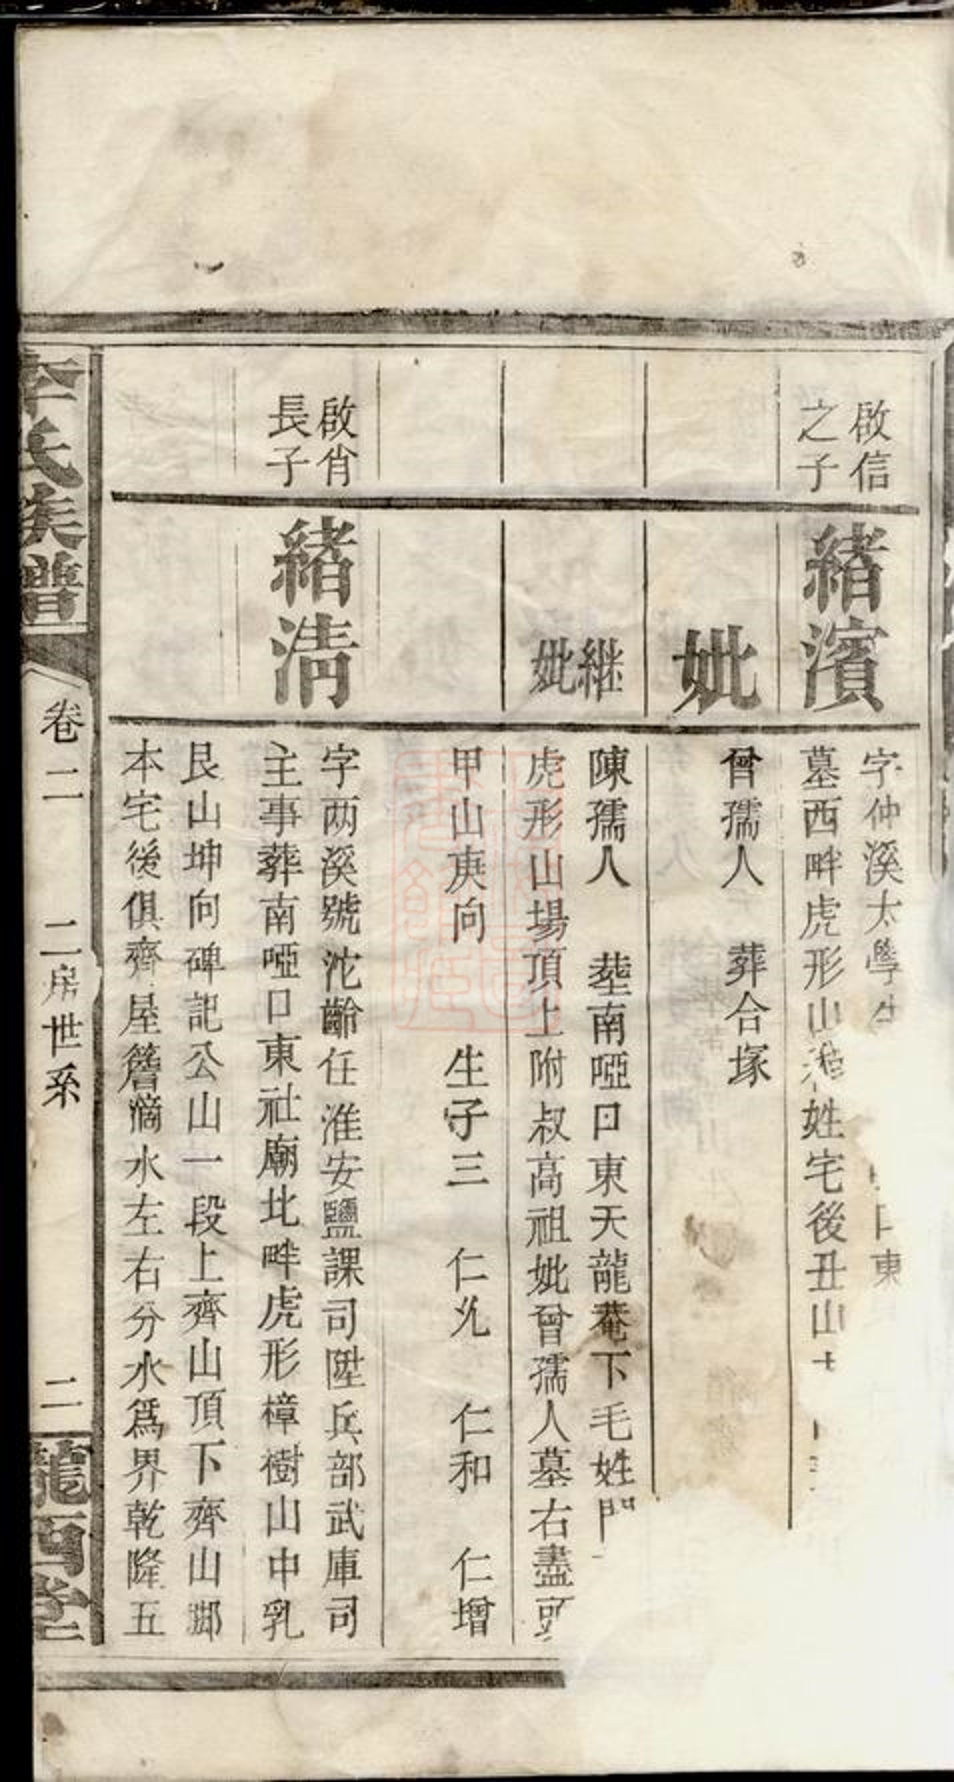 啟信
之子
緒濱
字仲溪太學生
口東
墓西畔虎形山
姓宅後丑山
妣
曾孺人 葬合塚
繼
妣
陳孺人 塟南啞口東天龍菴下毛姓門
虎形山場頂上附叔高祖妣曾孺人墓右盡頭
甲山庚向 生子三 仁 仁和 仁增
啟肖
長子
緒清
字两溪號沱齡任淮安鹽課司陞兵部武庫司
主事葬南啞口東社廟北畔虎形樟樹山中乳
艮山坤向碑記公山一段上齊山頂下齊山腳
本宅後俱齊屋簷滴水左右分水爲界乾隆五
李氏族譜
卷二 二房世系 二
龍西堂